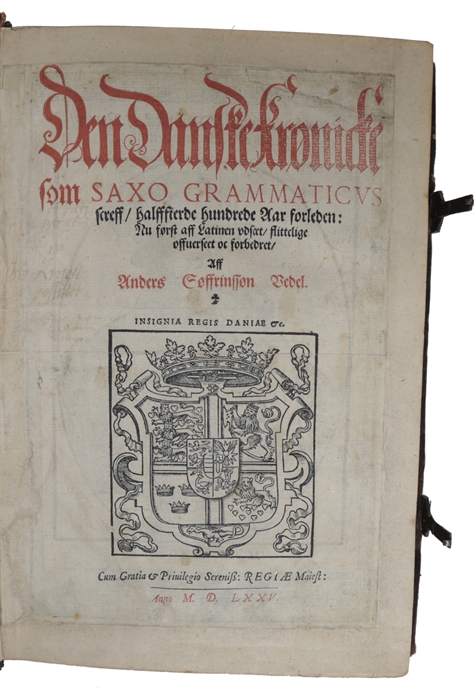 Den Danske Krønicke
som SAXO GRAMMATICVS
screff / halfffierde hundrede Aar forleden:
Nu først aff Latinen vdsæt / flittelige
offuerseet oc forbedret /
Aff
Anders Søffrinsson Vedel.
INSIGNIA REGIS DANIAE &c.
Cum Gratia & Priuilegio Sereniß: REGIÆ Maiest:
Anno M. D. LXXV.